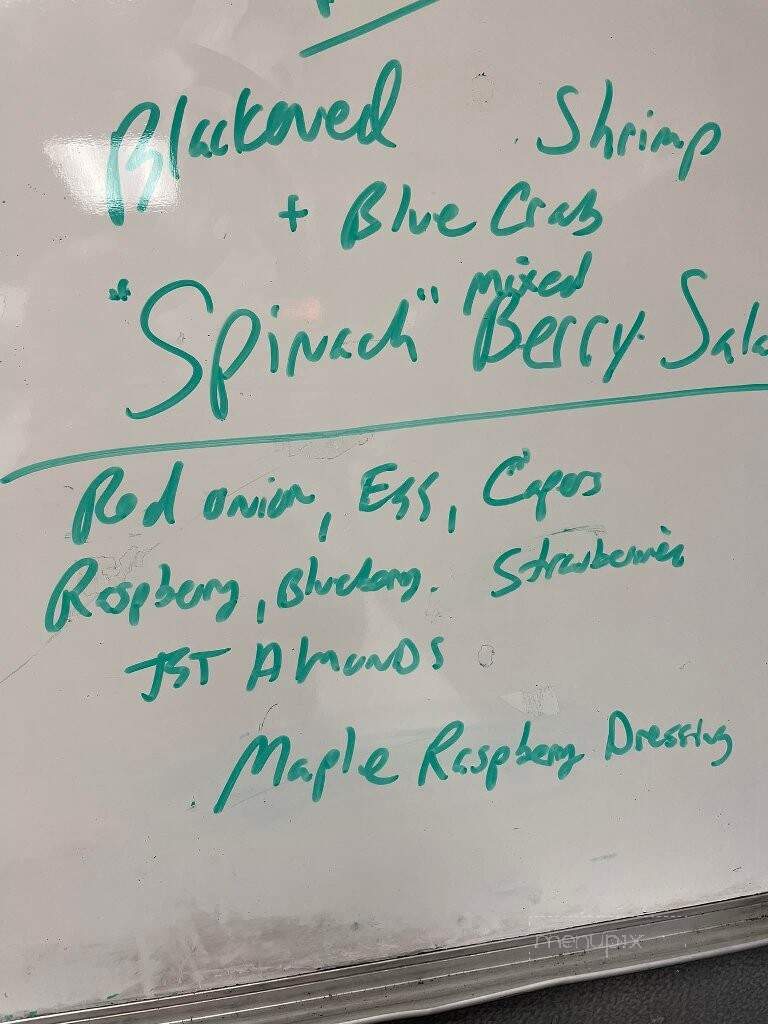 Blackened Shrimp
+ Blue Crab
"Spinach" mixed Berry Sala
Red onion, Egg, Capers
Raspberry, Blueberry. Strawberries
TST Almonds
Maple Raspberry Dressing
menupix